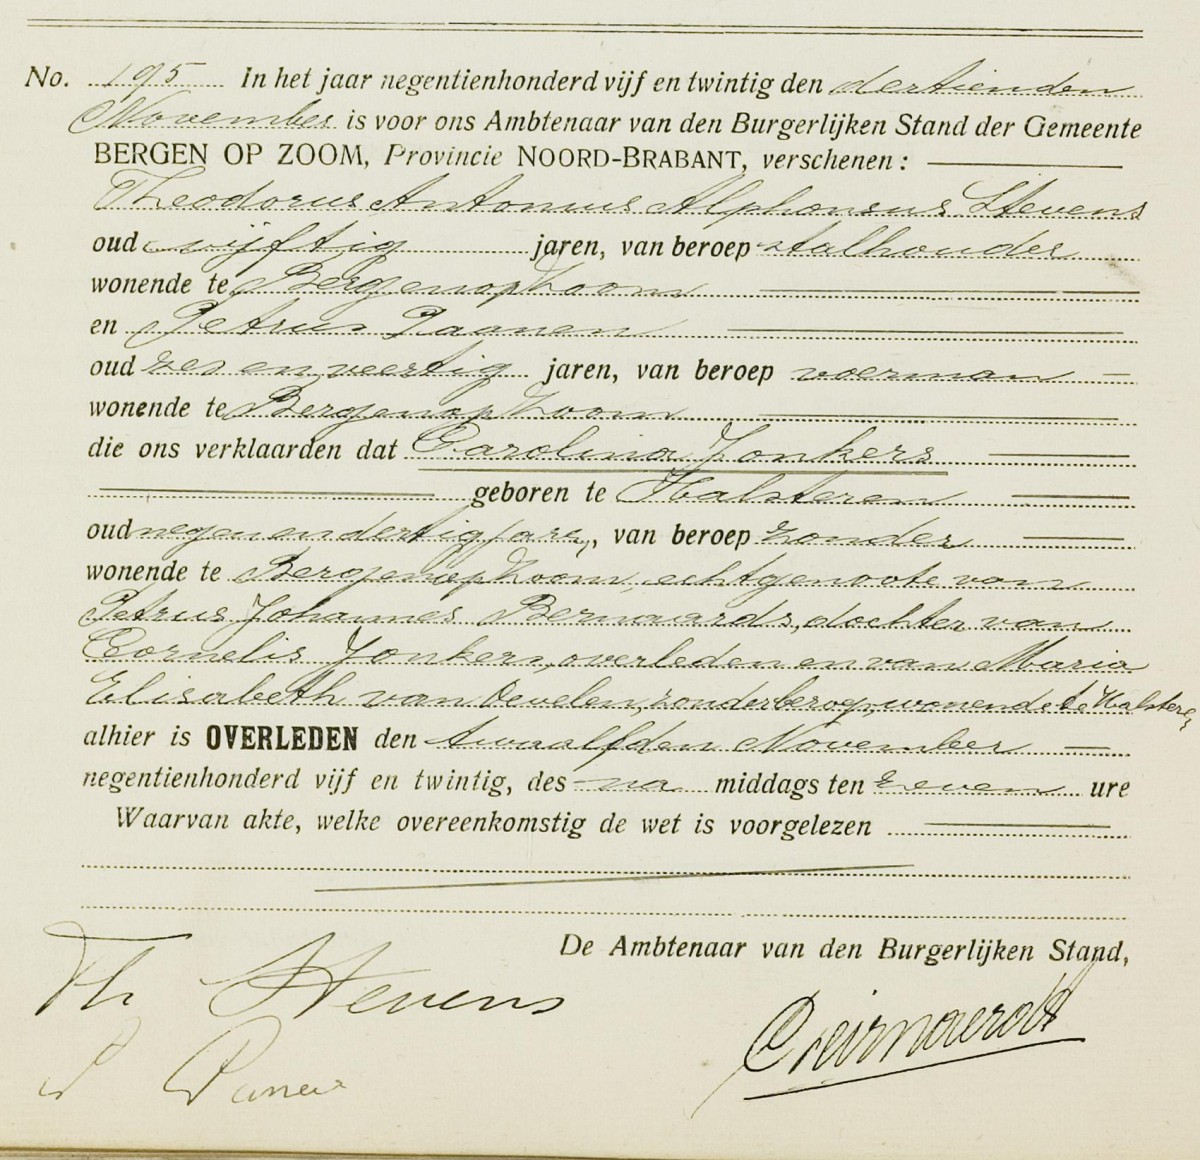 No. 195 In het jaar negentienhonderd vijf en twintig den dertienden
November is voor ons Ambtenaar van den Burgerlijken Stand der Gemeente
BERGEN OP ZOOM, Provincie NOORD-BRABANT, verschenen :
Theodorus Antonius Alphonsus Stevens
oud vijftig jaren, van beroep stalhouder
wonende te Bergenopzoom
en Petrus Paanen
oud zes en veertig jaren, van beroep voerman
wonende te Bergenopzoom
die ons verklaarden dat Carolina Jonkers
geboren te Halsteren
oud negenendertig jaar, van beroep zonder
wonende te Bergenopzoom, echtgenoote van
Petrus Johannes Bernaards, dochter van
Cornelis Jonkers, overleden en van Maria
Elisabeth van Oevelen, zonder beroep, wonende te Halsteren
alhier is OVERLEDEN den twaalfden November
negentienhonderd vijf en twintig, des na middags ten zeven ure
Waarvan akte, welke overeenkomstig de wet is voorgelezen
De Ambtenaar van den Burgerlijken Stand,
Th Stevens
P Panen